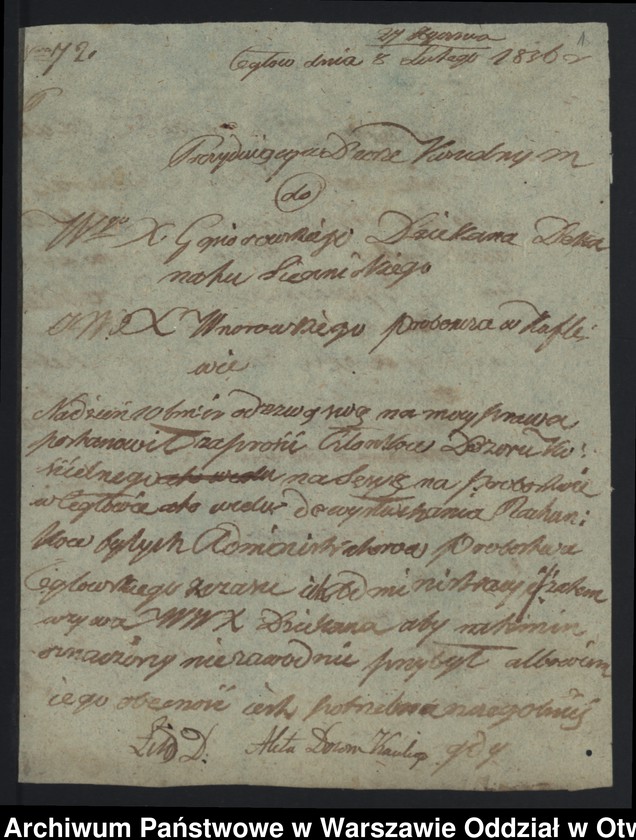 N 72.
27 Stycznia
Cegłow dnia 8 Lutego 1836 r
1
Prezydujący w Dozorze
do
W X. Gąsiorowskiego Dziekana Deka
natu Siennickiego
X Wnorowskiego proboszcza w Kafle
wie
Na dzień 10 b m i r na mocy prawa
postanowił zaprosić Członków Dozoru Ko:
ścielnego na Sessyę na probostwie
w Cegłowie do wysłuchania Rachun:
ków byłych Administratorow Probostwa
Cegłowskiego z czasu ich administracyi, zatem
wzywa WW X Dziekana aby na termin
oznaczony niezawodnie przybył albowiem
jego obecność jest potrzebna
Akta Dozoru gdy
Archiwum Państwowe w Warszawie Oddział w Otw